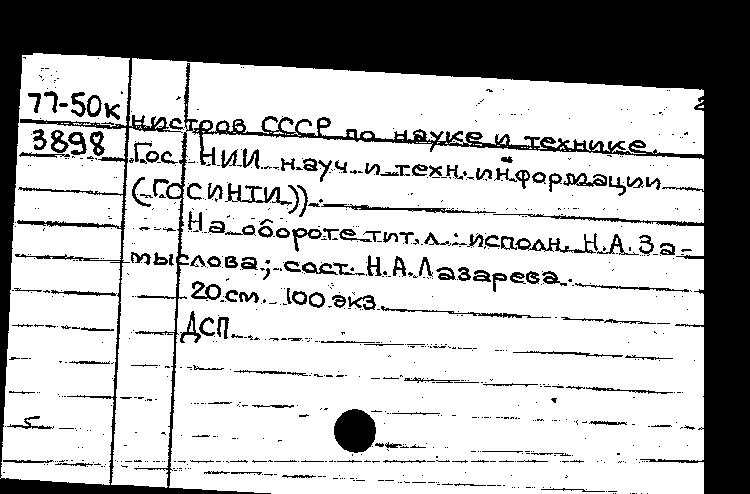 2
77-50к
3898
нистров СССР по науке и технике.
Гос. НИИ науч. и техн. информации
(ГОСИНТИ)).
На обороте тит. л.: исполн. Н.А. За-
мыслова; сост. Н.А. Лазарева.
20 см. 100 экз.
ДСП
5